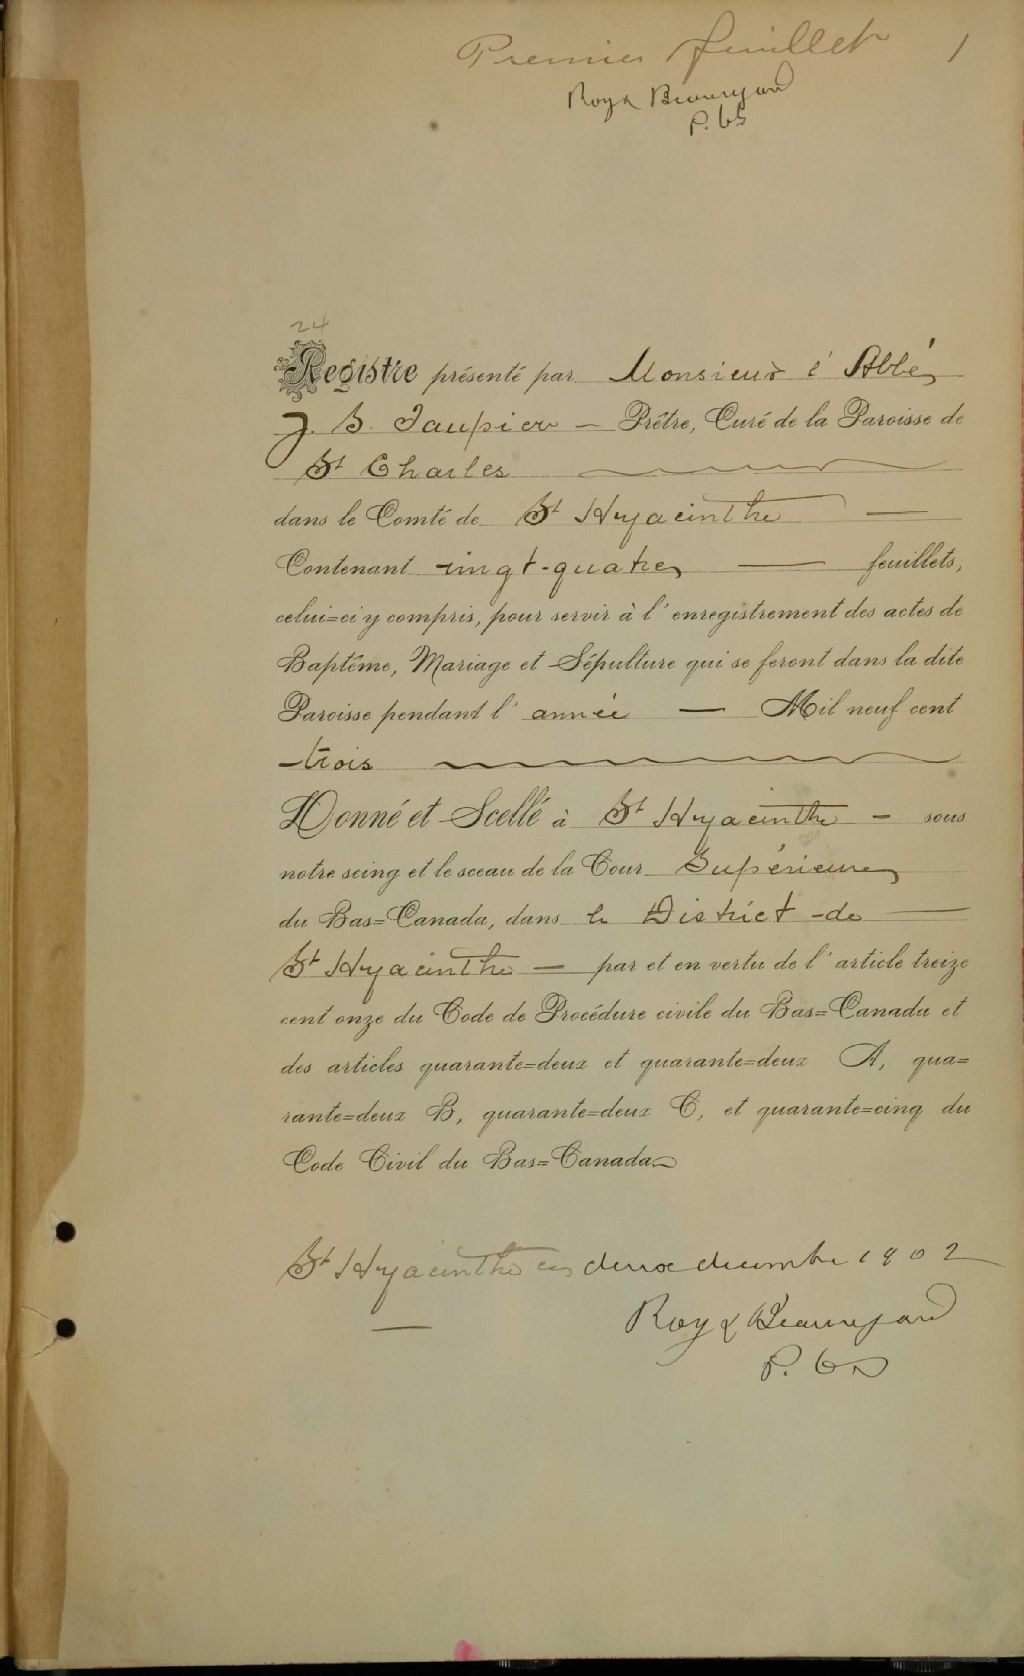 Premier feuillet 1
Roy & Beauregard
P. CS
24
Registre présenté par Monsieur l'Abbé
J. B. Taupier — Prêtre, Curé de la Paroisse de
St Charles
dans le Comté de St Hyacinthe —
Contenant vingt-quatre — feuillets,
celui=ci y compris, pour servir à l'enregistrement des actes de
Baptême, Mariage et Sépulture qui se feront dans la dite
Paroisse pendant l'année — Mil neuf cent
trois
Donné et Scellé à St Hyacinthe — sous
notre seing et le sceau de la Cour Supérieure
du Bas=Canada, dans le District de —
St Hyacinthe — par et en vertu de l'article treize
cent onze du Code de Procédure civile du Bas=Canada et
des articles quarante=deux et quarante=deux A, qua=
rante=deux B, quarante=deux C, et quarante=cinq du
Code Civil du Bas=Canada
St Hyacinthe ce deux décembre 1902
Roy & Beauregard
P. CS